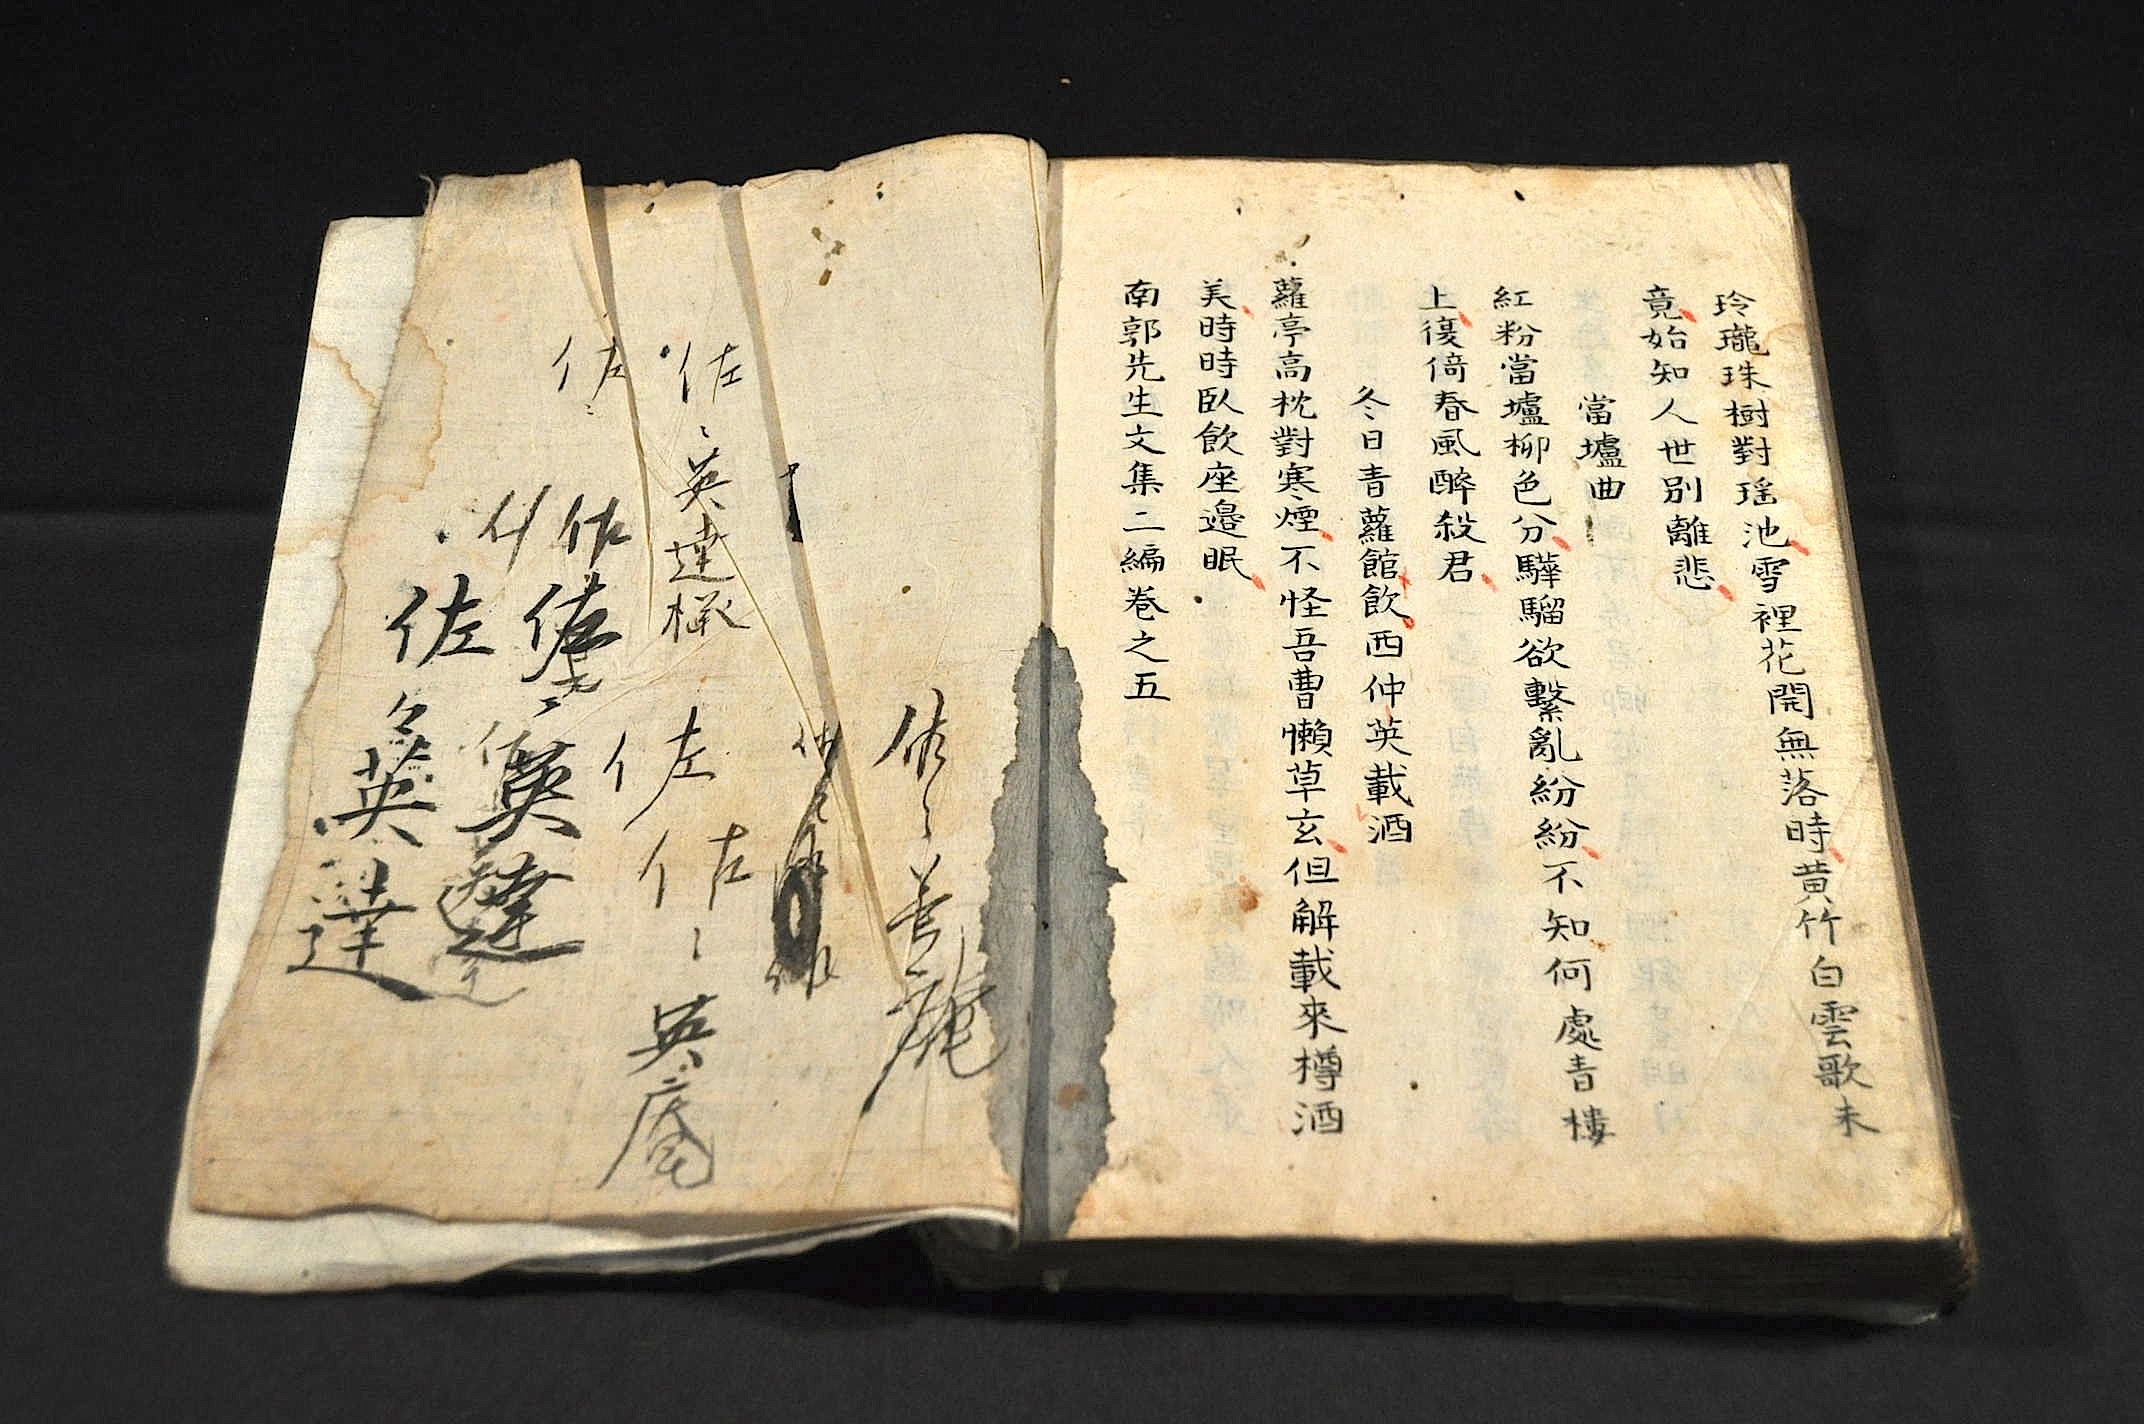 玲瓏珠樹對瑤池雪裡花開無落時黃竹白雲歌未
竟始知人世別離悲
當壚曲
紅粉當壚柳色分驊騮欲繫亂紛紛不知何處青樓
上復倚春風醉殺君
冬日青蘿館飲西仲英載酒
蘿亭高枕對寒煙不怪吾曹懶草玄但解載來樽酒
美時時臥飲座邉眠
南郭先生文集二編卷之五
佐々英達
佐
佐々英
佐
佐々英達